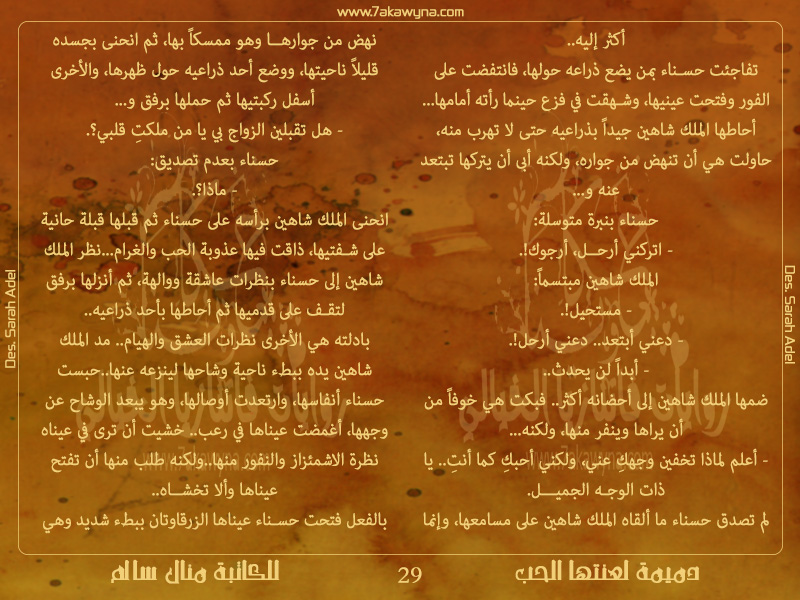 www.7akawyna.com
أكثر إليه..
تفاجئت حسـناء بمن يضع ذراعه حولها، فانتفضت على
الفور وفتحت عينيها، وشـهقت في فزع حينما رأته أمامها...
أحاطها الملك شاهين جيداً بذراعيه حتى لا تهرب منه،
حاولت هي أن تنهض من جواره، ولكنه أبى أن يتركها تبتعد
عنه و...
حسناء بنبرة متوسلة:
- اتركني أرحـــل، أرجوك!.
الملك شاهين مبتسماً:
- مستحيل!.
- دعني أبتعد.. دعني أرحل!.
- أبداً لن يحدث..
ضمها الملك شاهين إلى أحضانه أكثر.. فبكت هي خوفاً من
أن يراها وينفر منها، ولكنه...
- أعلم لماذا تخفين وجهكِ عني، ولكني أحبكِ كما أنتِ.. يا
ذات الوجـه الجميـــل.
لم تصدق حسناء ما ألقاه الملك شاهين على مسامعها، وإنما
نهض من جوارهــا وهو ممسكاً بها، ثم انحنى بجسده
قليلاً ناحيتها، ووضع أحد ذراعيه حول ظهرها، والأخرى
أسفل ركبتيها ثم حملها برفق و...
- هل تقبلين الزواج بي يا من ملكتِ قلبي؟.
حسناء بعدم تصديق:
- ماذا؟.
انحنى الملك شاهين برأسه على حسناء ثم قبلها قبلة حانية
على شـفتيها، ذاقت فيها عذوبة الحب والغرام...نظر الملك
شاهين إلى حسناء بنظرات عاشقة ووالهة، ثم أنزلها برفق
لتقـف على قدميها ثم أحاطها بأحد ذراعيه..
بادلته هي الأخرى نظرات العشق والهيام.. مد الملك
شاهين يده ببطء ناحية وشاحها لينزعه عنها..حبست
حسناء أنفاسها، وارتعدت أوصالها، وهو يبعد الوشاح عن
وجهها، أغمضت عيناها في رعب.. خشيت أن ترى في عيناه
نظرة الاشمئزاز والنفور منها..ولكنه طلب منها أن تفتح
عيناها وألا تخشـــاه..
بالفعل فتحت حســناء عيناها الزرقاوتان ببطء شديد وهي
دميمة لعنتها الحب
29
للكاتبة منال سالم
Des. Sarah Adel
Des. Sarah Adel